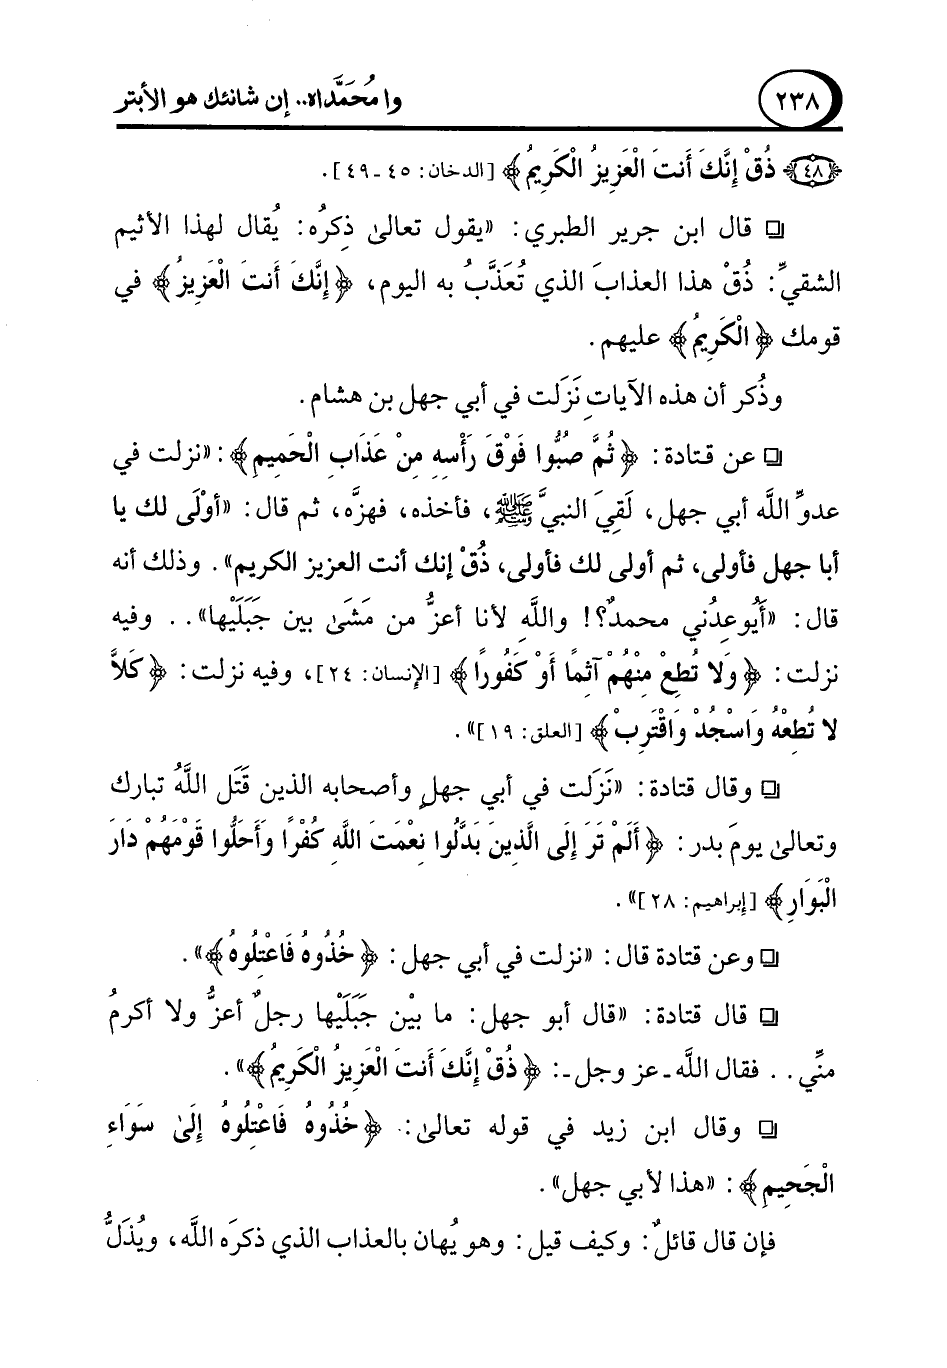 ٢٣٨ وا مُحَمَّداه.. إن شانئك هو الأبتر
﴿٤٨﴾ ذُقْ إِنَّكَ أَنتَ الْعَزِيزُ الْكَرِيمُ﴾ [الدخان: ٤٥ ـ ٤٩].
❏ قال ابن جرير الطبري: «يقول تعالىٰ ذِكرُه: يُقال لهذا الأثيم
الشقيِّ: ذُقْ هذا العذابَ الذي تُعَذَّبُ به اليوم، ﴿إِنَّكَ أَنتَ الْعَزِيزُ﴾ في
قومك ﴿الْكَرِيمُ﴾ عليهم.
وذُكر أن هذه الآياتِ نَزَلت في أبي جهل بن هشام.
❏ عن قتادة: ﴿ثُمَّ صُبُّوا فَوْقَ رَأْسِهِ مِنْ عَذَابِ الْحَمِيمِ﴾: «نزلت في
عدوِّ اللَّه أبي جهل، لَقِيَ النبيَّ ﷺ، فأخذه، فهزَّه، ثم قال: «أوْلَى لك يا
أبا جهل فأولى، ثم أولى لك فأولى، ذُقْ إنك أنت العزيز الكريم». وذلك أنه
قال: «أَيُوعِدُني محمدٌ؟! واللَّهِ لأنا أعزُّ من مَشَىٰ بين جَبَلَيْها».. وفيه
نزلت: ﴿وَلا تُطِعْ مِنْهُمْ آثِمًا أَوْ كَفُورًا﴾ [الإنسان: ٢٤]، وفيه نزلت: ﴿كَلاَّ
لا تُطِعْهُ وَاسْجُدْ وَاقْتَرِبْ﴾ [العلق: ١٩]».
❏ وقال قتادة: «نَزَلت في أبي جهلٍ وأصحابه الذين قَتَل اللَّهُ تبارك
وتعالىٰ يومَ بدر: ﴿أَلَمْ تَرَ إِلَى الَّذِينَ بَدَّلُوا نِعْمَتَ اللَّهِ كُفْرًا وَأَحَلُّوا قَوْمَهُمْ دَارَ
الْبَوَارِ﴾ [إبراهيم: ٢٨]».
❏ وعن قتادة قال: «نزلت في أبي جهل: ﴿خُذُوهُ فَاعْتِلُوهُ﴾».
❏ قال قتادة: «قال أبو جهل: ما بيْن جَبَلَيْها رجلٌ أعزُّ ولا أكرمُ
منِّي.. فقال اللَّه ـ عز وجل ـ: ﴿ذُقْ إِنَّكَ أَنتَ الْعَزِيزُ الْكَرِيمُ﴾».
❏ وقال ابن زيد في قوله تعالىٰ: ﴿خُذُوهُ فَاعْتِلُوهُ إِلَىٰ سَوَاءِ
الْجَحِيمِ﴾: «هذا لأبي جهل».
فإن قال قائلٌ: وكيف قيل: وهو يُهان بالعذاب الذي ذكرَه اللَّه، ويُذَلُّ